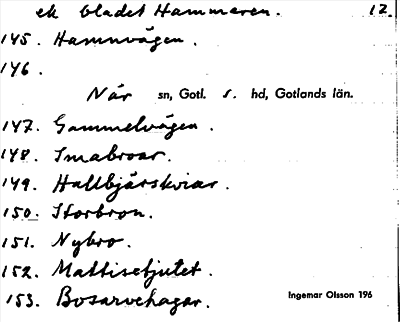 ek bladet Hammaren. 12.
145. Hamnvägen.
146.
När sn, Gotl. s. hd, Gotlands län.
147. Gammelvägen.
148. Smabroar.
149. Hallbjärskviar.
150. Storbron.
151. Nybro.
152. Mattisetjutet.
153. Bosarvehagar.
Ingemar Olsson 196